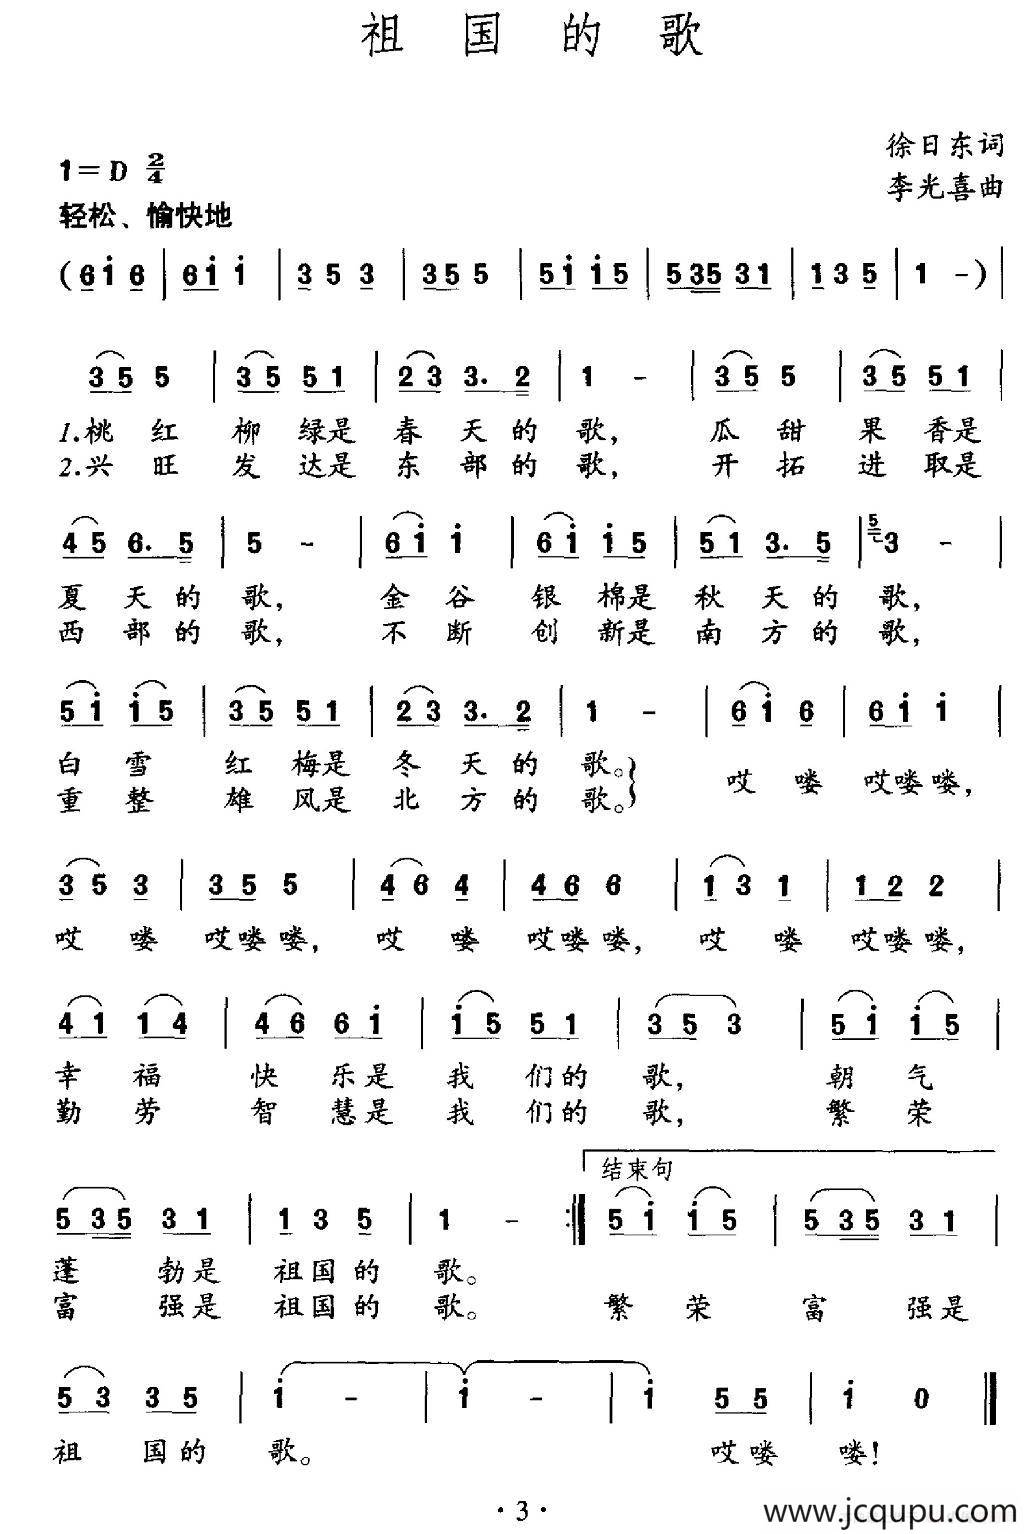 祖国的歌
徐日东词
1=D 2/4
李光喜曲
轻松、愉快地
(6 i 6 | 6 i i | 3 5 3 | 3 5 5 | 5 i i 5 | 5 3 5 3 1 | 1 3 5 | 1 - ) |
3 5 5 | 3 5 5 1 | 2 3 3. 2 | 1 - | 3 5 5 | 3 5 5 1 |
1.桃 红 柳 绿是 春 天的 歌, 瓜 甜 果 香是
2.兴 旺 发 达是 东 部的 歌, 开 拓 进 取是
4 5 6. 5 | 5 - | 6 i i | 6 i i 5 | 5 1 3. 5 | 5 3 - |
夏 天的 歌, 金 谷 银 棉是 秋 天的 歌,
西 部的 歌, 不 断 创 新是 南 方的 歌,
5 i i 5 | 3 5 5 1 | 2 3 3. 2 | 1 - | 6 i 6 | 6 i i |
白 雪 红 梅是 冬 天的 歌。 哎 喽 哎喽喽,
重 整 雄 风是 北 方的 歌。
3 5 3 | 3 5 5 | 4 6 4 | 4 6 6 | 1 3 1 | 1 2 2 |
哎 喽 哎喽喽, 哎 喽 哎喽喽, 哎 喽 哎喽喽,
4 1 1 4 | 4 6 6 i | i 5 5 1 | 3 5 3 | 5 i i 5 |
幸 福 快 乐是 我 们的 歌, 朝 气
勤 劳 智 慧是 我 们的 歌, 繁 荣
结束句
5 3 5 3 1 | 1 3 5 | 1 - :| 5 i i 5 | 5 3 5 3 1 |
蓬 勃是 祖国的 歌。
富 强是 祖国的 歌。 繁 荣 富 强是
5 3 3 5 | i - | i - | i 5 5 | i 0 ||
祖 国的 歌。 哎喽 喽!
·3·
www.jcqupu.com